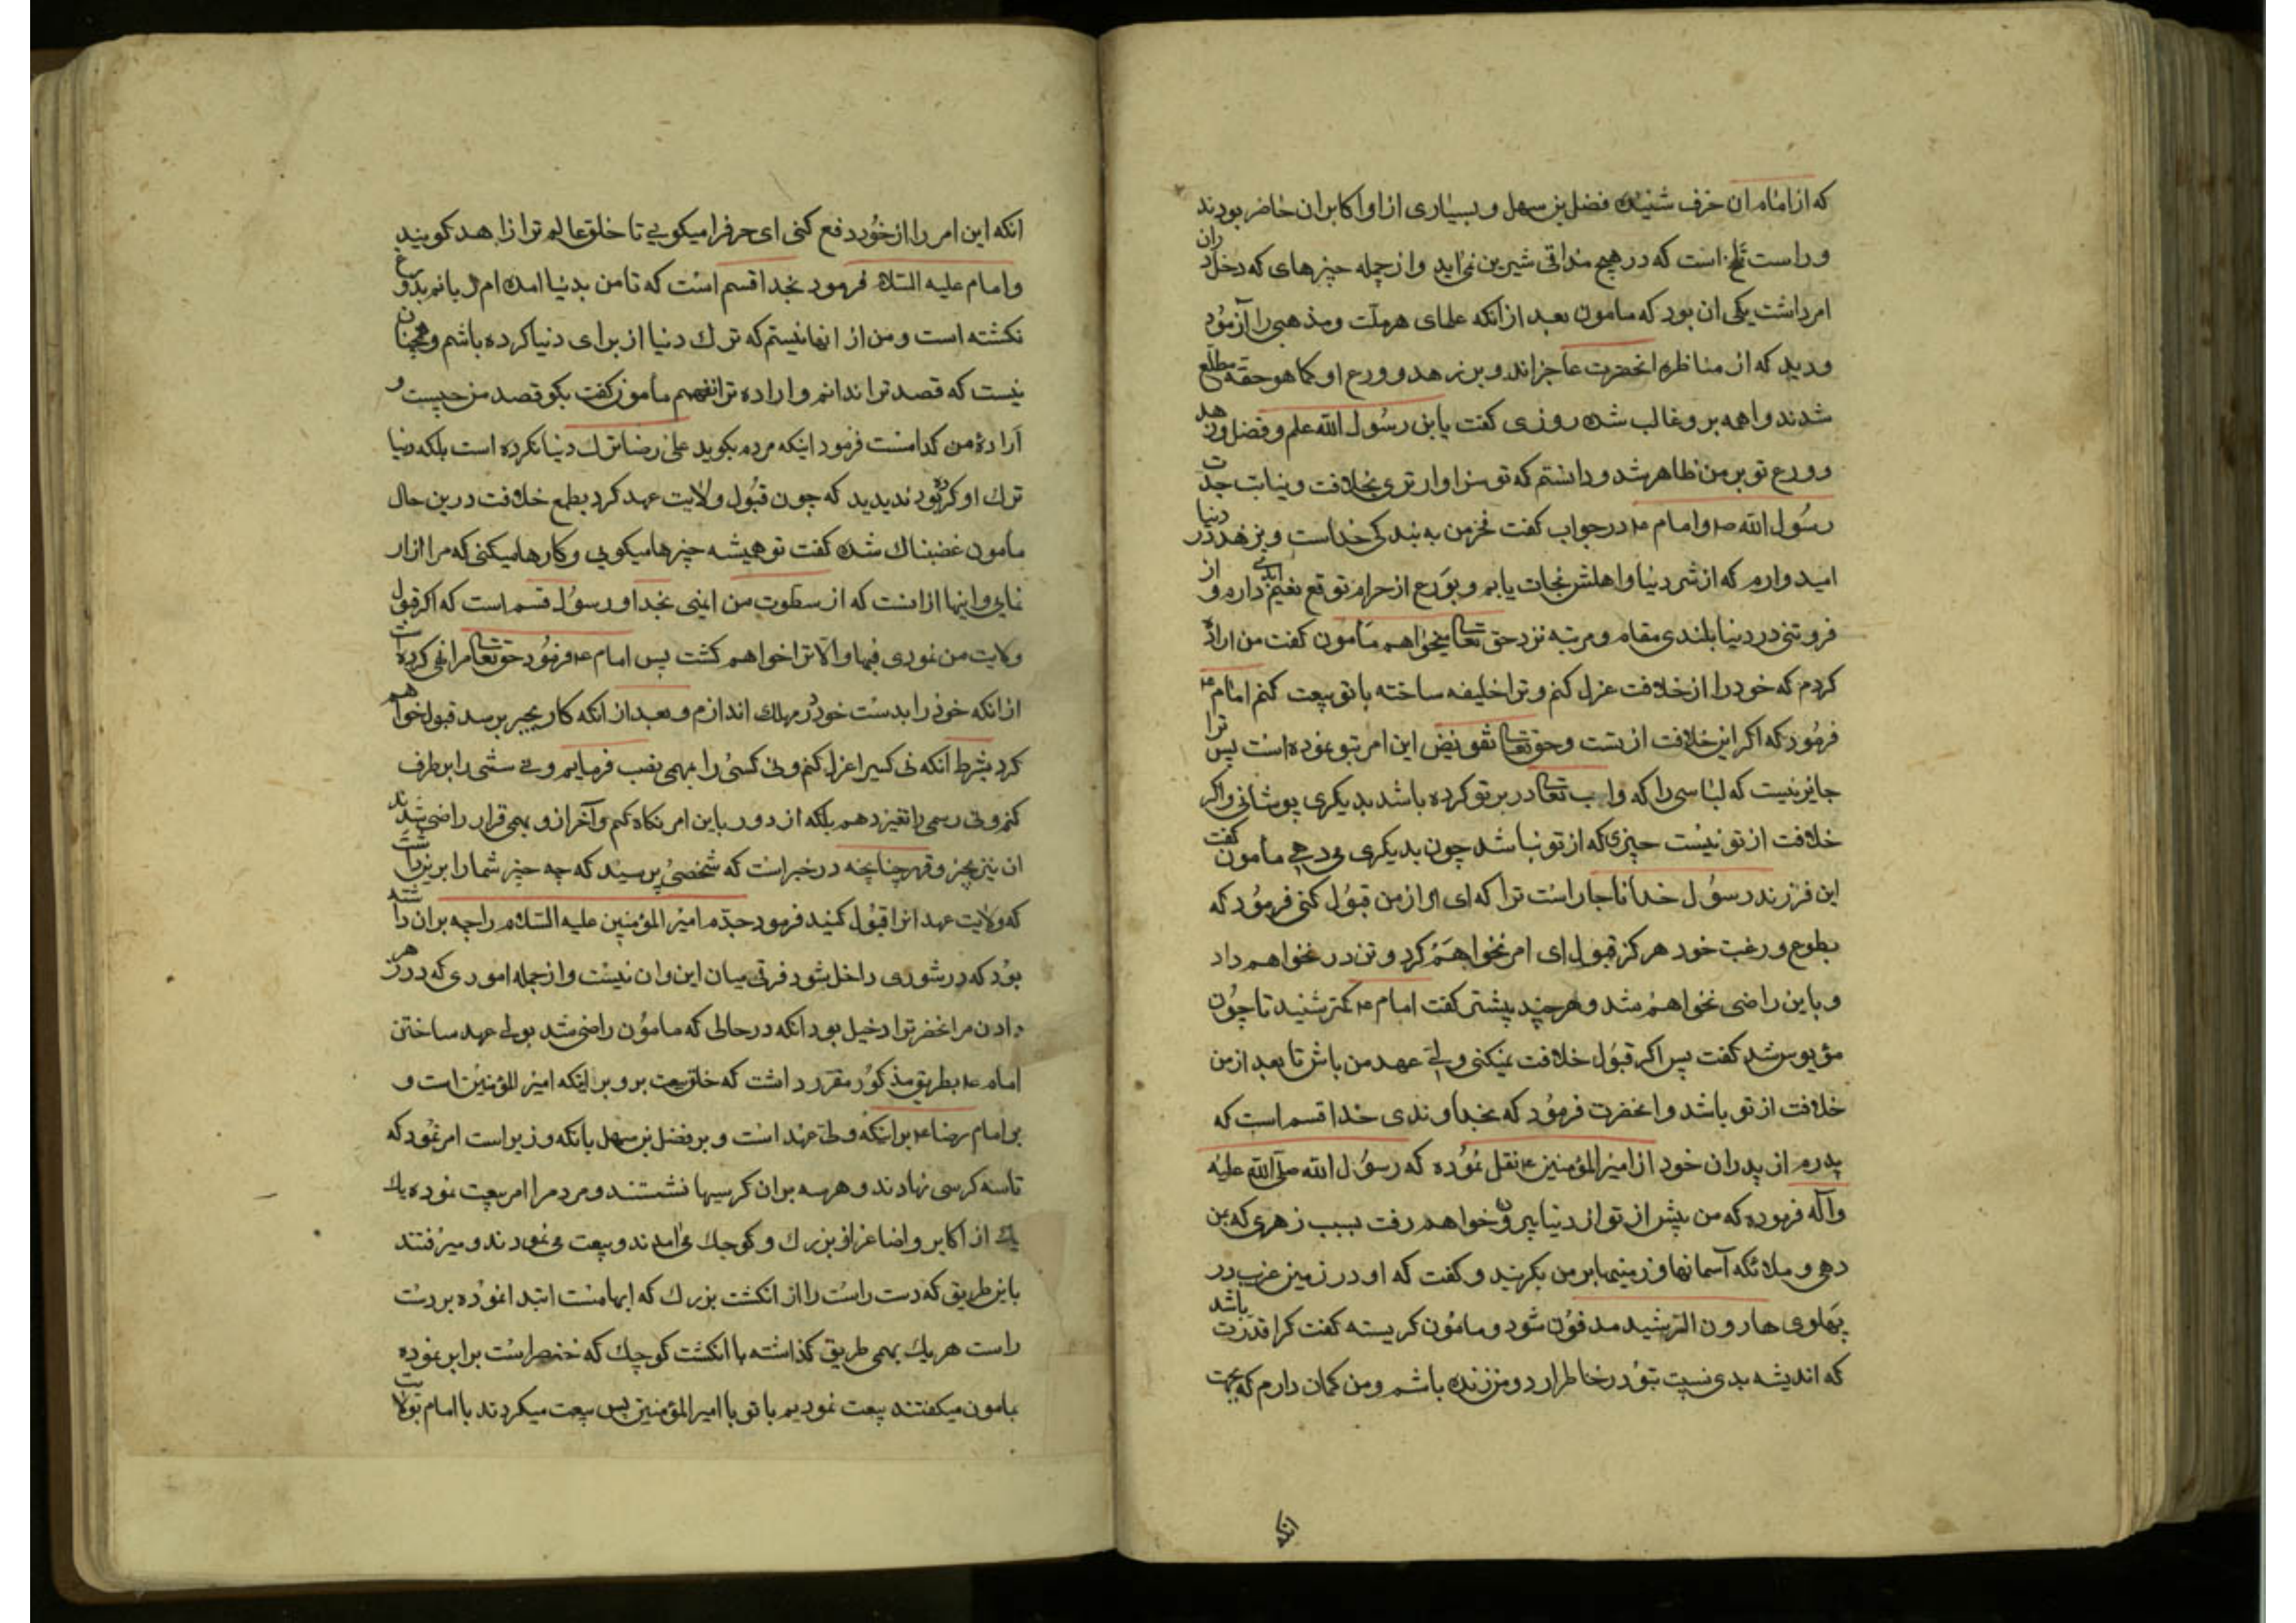 که از امام ان حرف شنیده فضل بن سهل و بسیاری از او اکابر ان حاضر بودند
و راست تلخ است که در هیچ مذاقی شیرین نمی اید و از جمله چیزهای که دخل دران
امر داشت یکی ان بود که مامون بعد از آنکه علمای هر ملت و مذهبی را آزمود
و دید که از مناظره انحضرت عاجزاند و بر زهد و ورع او کما هو حقه مطلع
شدند و اهمه بر و غالب شده روزی کفت یا بن رسول الله علم و فضل و زهد
و ورع تو بر من ظاهر شد و دانستم که تو سزاوار تری بخلافت و نیابت جدت
رسول الله ص و امام ع در جواب کفت فخر من به بندکی خداست و بزهد در دنیا
امیدوارم که از شر دنیا و اهلش نجات یابم و بورع از حرام توقع نعیم ابدی دارم و از
فروتنی در دنیا بلندی مقام و مرتبه نزد حق تعالی میخواهم مامون کفت من اراده
کردم که خود را از خلافت عزل کنم و ترا خلیفه ساخته با تو بیعت کنم امام ع
فرمود که اکر این خلافت از تست و حق تعالی تفویض این امر بتو نموده است پس ترا
جایز نیست که لباسی را که واجب تعالی در بر تو کرده باشد بدیکری پوشانی و اکر
خلافت از تو نیست چیزی که از تو نباشد چون بدیکری می دهی مامون کفت
این فرزند رسول خدا ناجار است ترا که ای از من قبول کنی فرمود که
بطوع و رغبت خود هرکز قبول ای امر نخواهم کرد و تن در نخواهم داد
و باین راضی نخواهم شد و هر چند پیشتر کفت امام ع کمتر شنید تا چون
مؤیوس شد کفت پس اکر قبول خلافت نمیکنی ولی عهد من باش تا بعد از من
خلافت از تو باشد و انحضرت فرمود که بخداوندی خدا قسم است که
پدرم از پدران خود از امیر المؤمنین ع نقل نموده که رسول الله صلی الله علیه
و آله فرموده که من پیش از تو از دنیا بیرون خواهم رفت بسبب زهری که بمن
دهی و ملائکه آسمانها و زمینها بر من بکریند و کفت که او در زمین غرب در
پهلوی هارون الرشید مدفون شود و مامون کریسته کفت کرا قدرت باشد
که اندیشه بدی نسبت بتو در خاطر ارد و من زنده باشم و من کمان دارم که بجهت
انکه
انکه این امر را از خود دفع کنی ای حرفرا میکویی تا خلق عالم ترا زاهد کویند
و امام علیه السلام فرمود بخدا قسم است که تا من بدنیا امده ام زبانم بدروغ
نکشته است و من از انها نیستم که ترک دنیا از برای دنیا کرده باشم و همچنان
نیست که قصد ترا ندانم و اراده ترا نفهمم مأمون کفت بکو قصد من چیست و
ارادهٔ من کدامست فرمود اینکه مردم بکوید علی رضا ترک دنیا نکرده است بلکه دنیا
ترک او کرده بود ندیدید که چون قبول ولایت عهد کرد بطمع خلافت درین حال
مأمون غضبناک شده کفت تو همیشه چیزها میکویی و کارها میکنی که مرا ازار
نمایی و اینها از انست که از سطوت من ایمنی بخدا و رسول قسم است که اکر قبول
ولایت من نمودی فبها و الا ترا خواهم کشت پس امام ع فرمود حق تعالی مرا نهی کرده است
از انکه خود را بدست خود در مهلک اندازم و بعد از انکه کار بجبر برسد قبول خواهم
کرد بشرط آنکه نی کسیرا عزل کنم و نی کسی را بهمی نصب فرمایم و نی سنتی را بر طرف
کنم و نی رسمی را تغیر دهم بلکه از دور باین امر نکاه کنم و آخر از و بهمی قرار راضی شدند
ان نیز بجبر و قهر چنانچه در خبر است که شخصی پرسید که چه چیز شما را برین داشت
که ولایت عهد انرا قبول کنید فرمود جدم امیر المؤمنین علیه السلام را چه بران داشته
بود که در شوری داخل شود فرقی میان این و ان نیست و از جمله اموری که در زهر
دادن مر انحضرترا دخیل بود آنکه در حالی که مامون راضی شد بولی عهد ساختن
امام ع بطریق مذکور مقرر داشت که خلق بیعت بر و بر اینکه امیر المؤمنین است و
بر امام رضا ع بر اینکه ولی عهد است و بر فضل بن سهل بانکه وزیر است امر نمود که
تا سه کرسی نهادند و هر سه بران کرسیها نشستند و مردم را امر بیعت نموده یک
یک از اکابر و اضاغر از بزرک و کوچک می امدند و بیعت می نمودند و میرفتند
باین طریق که دست راست را از انکشت بزرک که ابهامست ابتدا نموده بر دست
راست هر یک بهمی طریق کذاشته با انکشت کوچک که خنصراست برابر نموده
بمامون میکفتند بیعت نمودیم با تو با امیر المؤمنین پس بیعت میکردند با امام بولایت